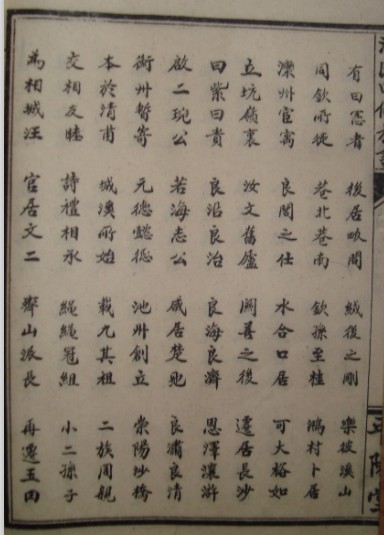 有曰忍者 後居畈間 絨後之剛 樂彼溪山
同欽所從 巷北巷南 欽孫至桂 鴻村卜居
灤州宦寓 良閣之仕 水合口居 可大裕如
立坑嶺裏 汝文舊廬 闕善之後 遷居長沙
曰紫曰貴 良沿良治 良海良濟 恩澤瀼滸
啟二琬公 若海志公 咸居楚北 良浦良清
衝州暫寄 元德懿德 池州創立 崇陽沙橋
本於清甫 城溪所始 載九其祖 二族周親
交相友睦 詩禮相承 繩繩冠組 小二孫子
為相城汪 官居文二 齊山派長 再遷玉